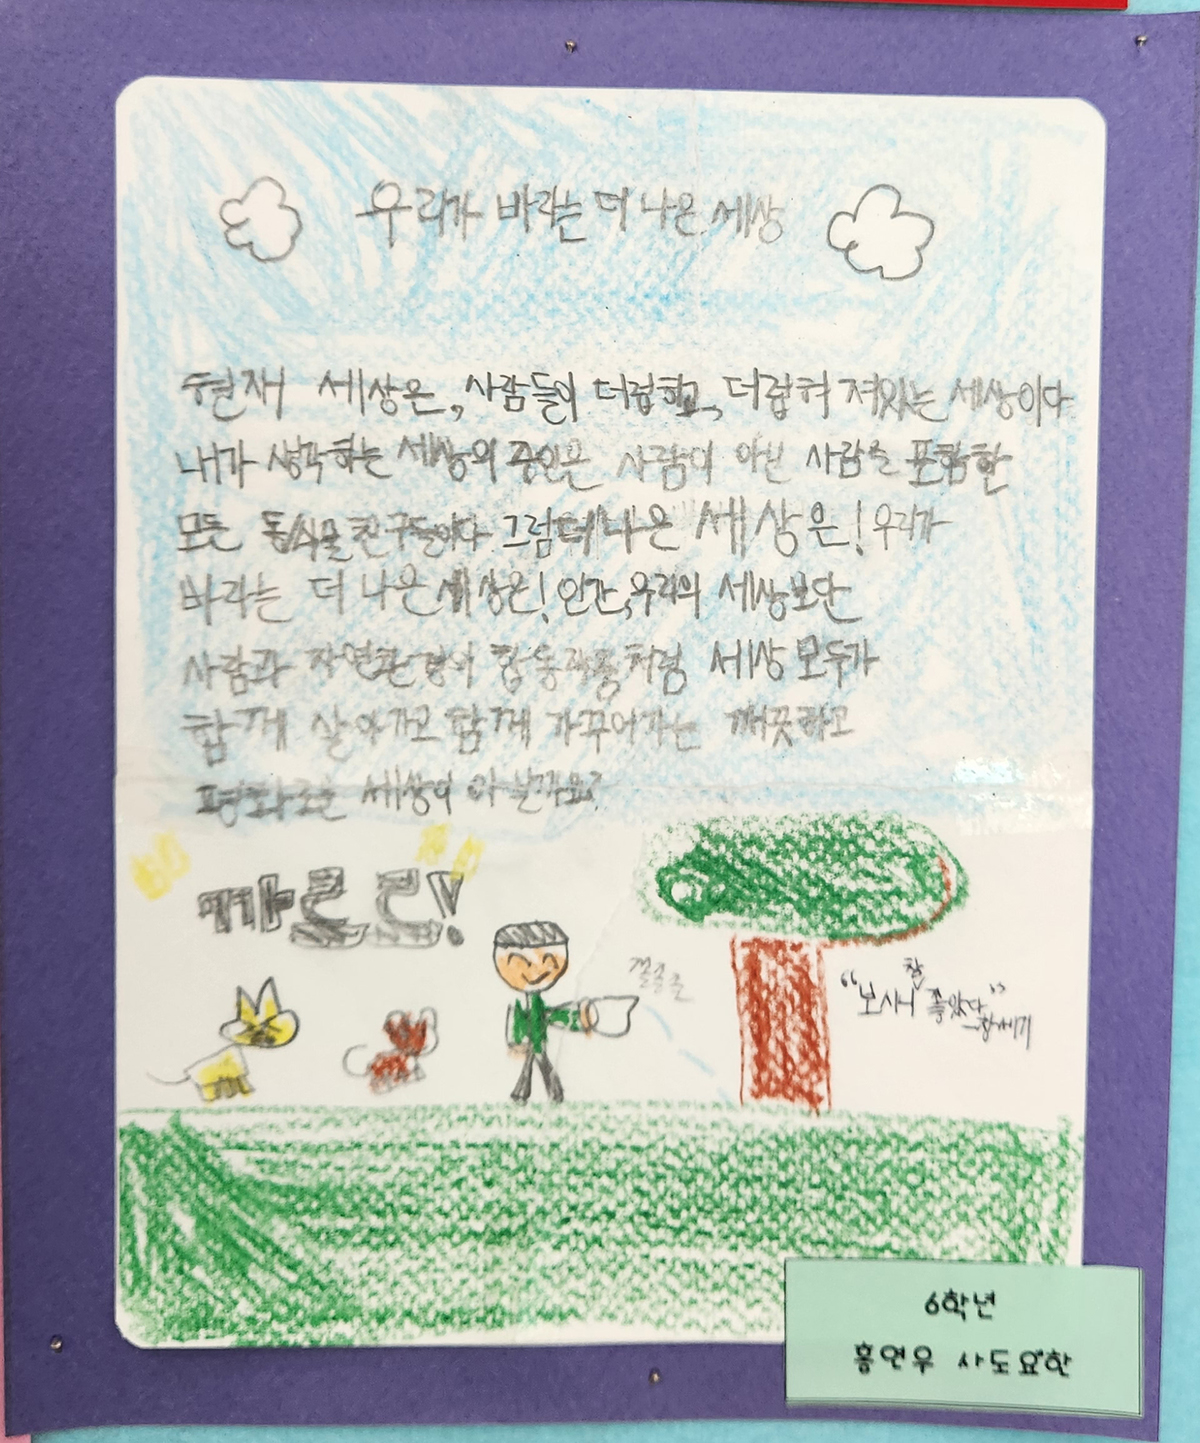 우리가 바라는 더 나은 세상
현재 세상은, 사람들이 더럽히고, 더렵혀 져있는 세상이다
내가 생각하는 세상의 주인은 사람이 아닌 사람을 포함한
모든 동식물 친구들이다 그럼 더 나은 세상은! 우리가
바라는 더 나은 세상은! 인간, 우리의 세상보단
사람과 자연환경이 합동작품처럼 세상 모두가
함께 살아가고 함께 가꾸어가는 깨끗하고
평화로운 세상이 아닐까요?
까르르!
쪼르륵
"보시니 참 좋았다"
-창세기
6학년
홍연우 사도요한